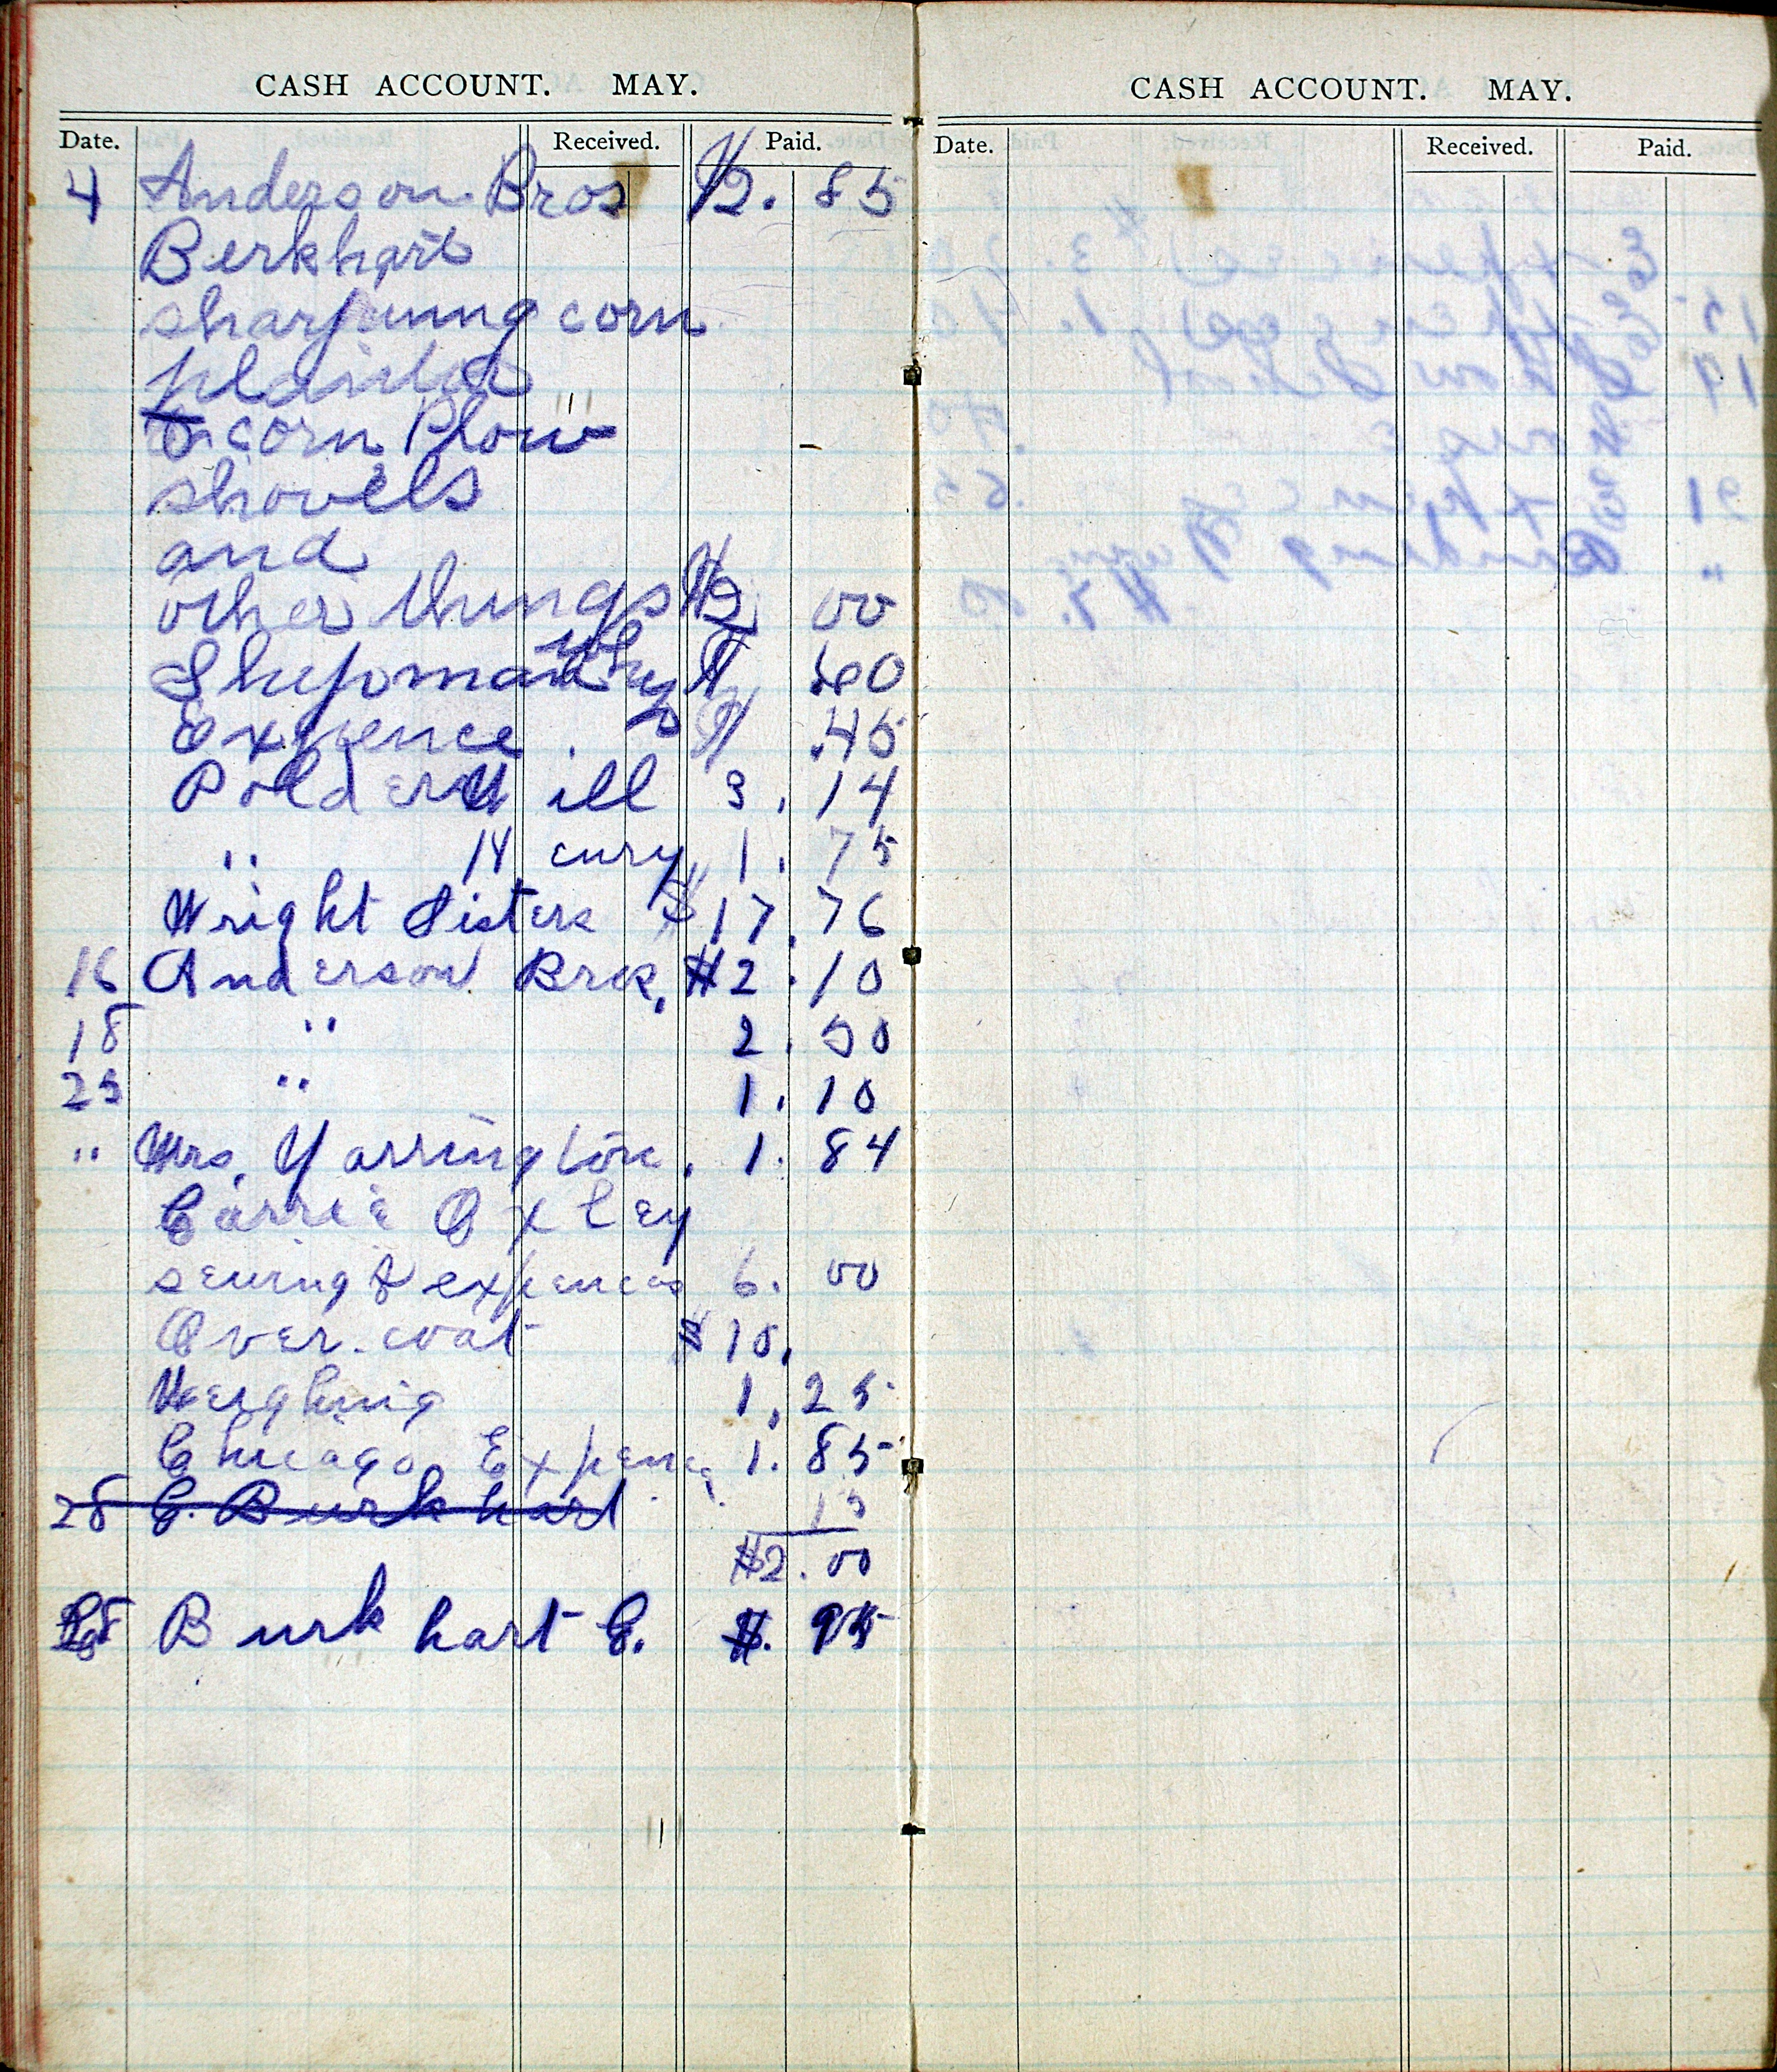 CASH ACCOUNT. MAY.
Date. Received. Paid.
4 Anderson Bros $2. 85
Berkhart
sharpening corn
corn Plow
shovels
and
other things $2 00
$ .60
Expence. $ .45
Polder Will 3. 14
" 14 1. 75
Wright Sisters $17.76
16 Anderson Bros, $2.10
18 " 2. 50
23 " 1. 10
" Mrs. Yarrington. 1. 84
Carrie Oxley
sewing & expences 6. 00
Over.coat $10.
Weighing 1.25
Chicago Expence 1. 85
28 E. Burkhart 15
$2.00
28 Burkhart E. $. 95
CASH ACCOUNT. MAY.
Date. Received. Paid.